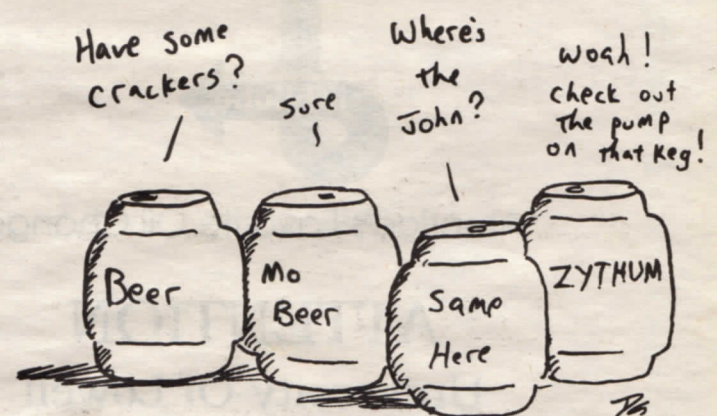 Have some
crackers?
Sure
Where's
the
John?
woah!
check out
the pump
on that keg!
Beer
Mo
Beer
Same
Here
ZYTHUM